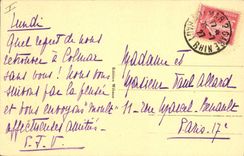 Lundi
Quel regret de nous
retrouver à Colmar
sans vous! Nous vous
suivons par la pensée
et vous envoyons "moult"
affectueuses amitiés.
Madame et
Monsieur Paul Allard
11 - rue Marcel-Renault
Paris-17e